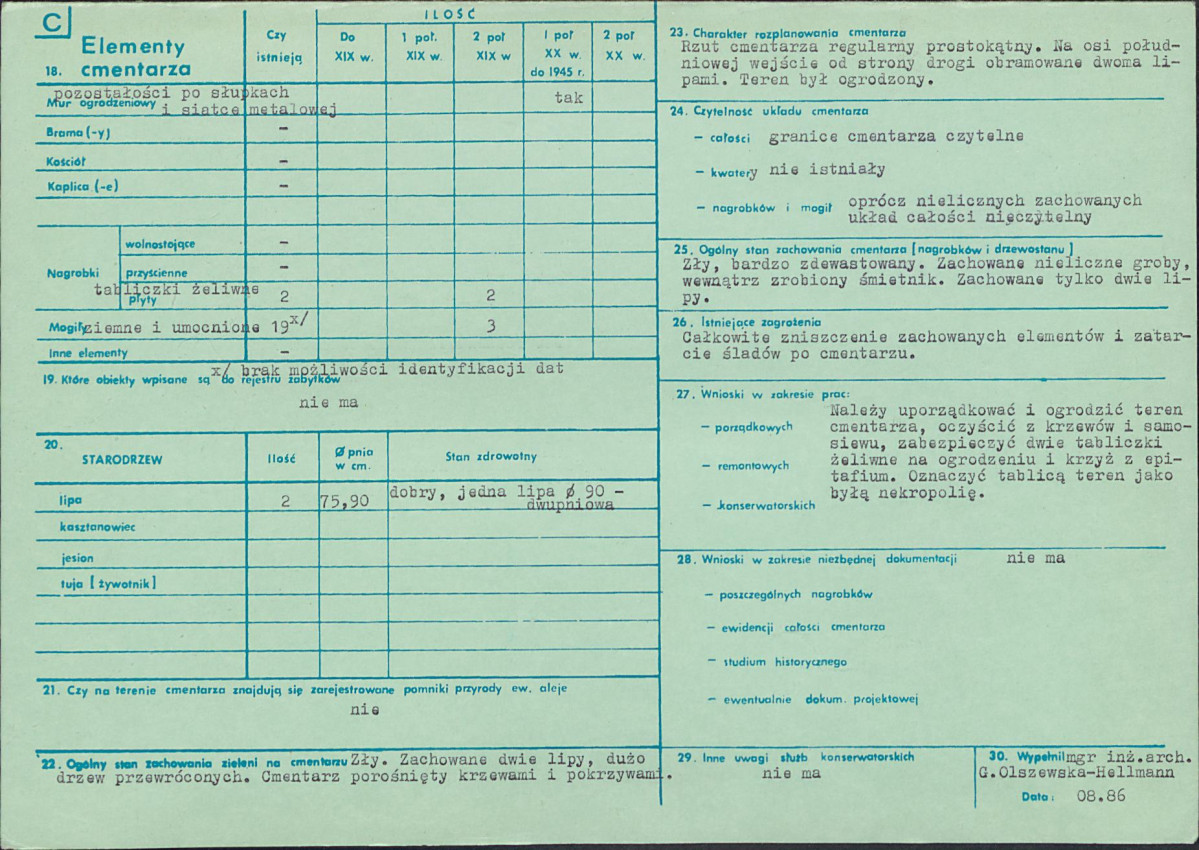 C
18. Elementy cmentarza
Czy istnieją
ILOŚĆ
Do XIX w.
1 poł. XIX w.
2 poł XIX w
I poł XX w. do 1945 r.
2 poł XX w.
pozostałości po słupkach
Mur ogrodzeniowy i siatce metalowej tak
Brama (-y) –
Kościół –
Kaplica (-e) –
Nagrobki
wolnostojące –
przyścienne –
tabliczki żeliwne
płyty 2 2
Mogiły ziemne i umocnione 19x/ 3
Inne elementy –
x/ brak możliwości identyfikacji dat
19. Które obiekty wpisane są do rejestru zabytków
nie ma
20. STARODRZEW
Ilość
Ø pnia w cm.
Stan zdrowotny
lipa 2 75,90 dobry, jedna lipa ø 90 –
dwupniowa
kasztanowiec
jesion
tuja [żywotnik]
21. Czy na terenie cmentarza znajdują się zarejestrowane pomniki przyrody ew. aleje
nie
22. Ogólny stan zachowania zieleni na cmentarzu Zły. Zachowane dwie lipy, dużo
drzew przewróconych. Cmentarz porośnięty krzewami i pokrzywami.
23. Charakter rozplanowania cmentarza
Rzut cmentarza regularny prostokątny. Na osi połud-
niowej wejście od strony drogi obramowane dwoma li-
pami. Teren był ogrodzony.
24. Czytelność układu cmentarza
– całości granice cmentarza czytelne
– kwatery nie istniały
– nagrobków i mogił oprócz nielicznych zachowanych
układ całości nieczytelny
25. Ogólny stan zachowania cmentarza [nagrobków i drzewostanu]
Zły, bardzo zdewastowany. Zachowane nieliczne groby,
wewnątrz zrobiony śmietnik. Zachowane tylko dwie li-
py.
26. Istniejące zagrożenia
Całkowite zniszczenie zachowanych elementów i zatar-
cie śladów po cmentarzu.
27. Wnioski w zakresie prac:
– porządkowych
– remontowych
– konserwatorskich
Należy uporządkować i ogrodzić teren
cmentarza, oczyścić z krzewów i samo-
siewu, zabezpieczyć dwie tabliczki
żeliwne na ogrodzeniu i krzyż z epi-
tafium. Oznaczyć tablicą teren jako
byłą nekropolię.
28. Wnioski w zakresie niezbędnej dokumentacji nie ma
– poszczególnych nagrobków
– ewidencji całości cmentarza
– studium historycznego
– ewentualnie dokum. projektowej
29. Inne uwagi służb konserwatorskich
nie ma
30. Wypełnił mgr inż.arch.
G.Olszewska-Hellmann
Data: 08.86